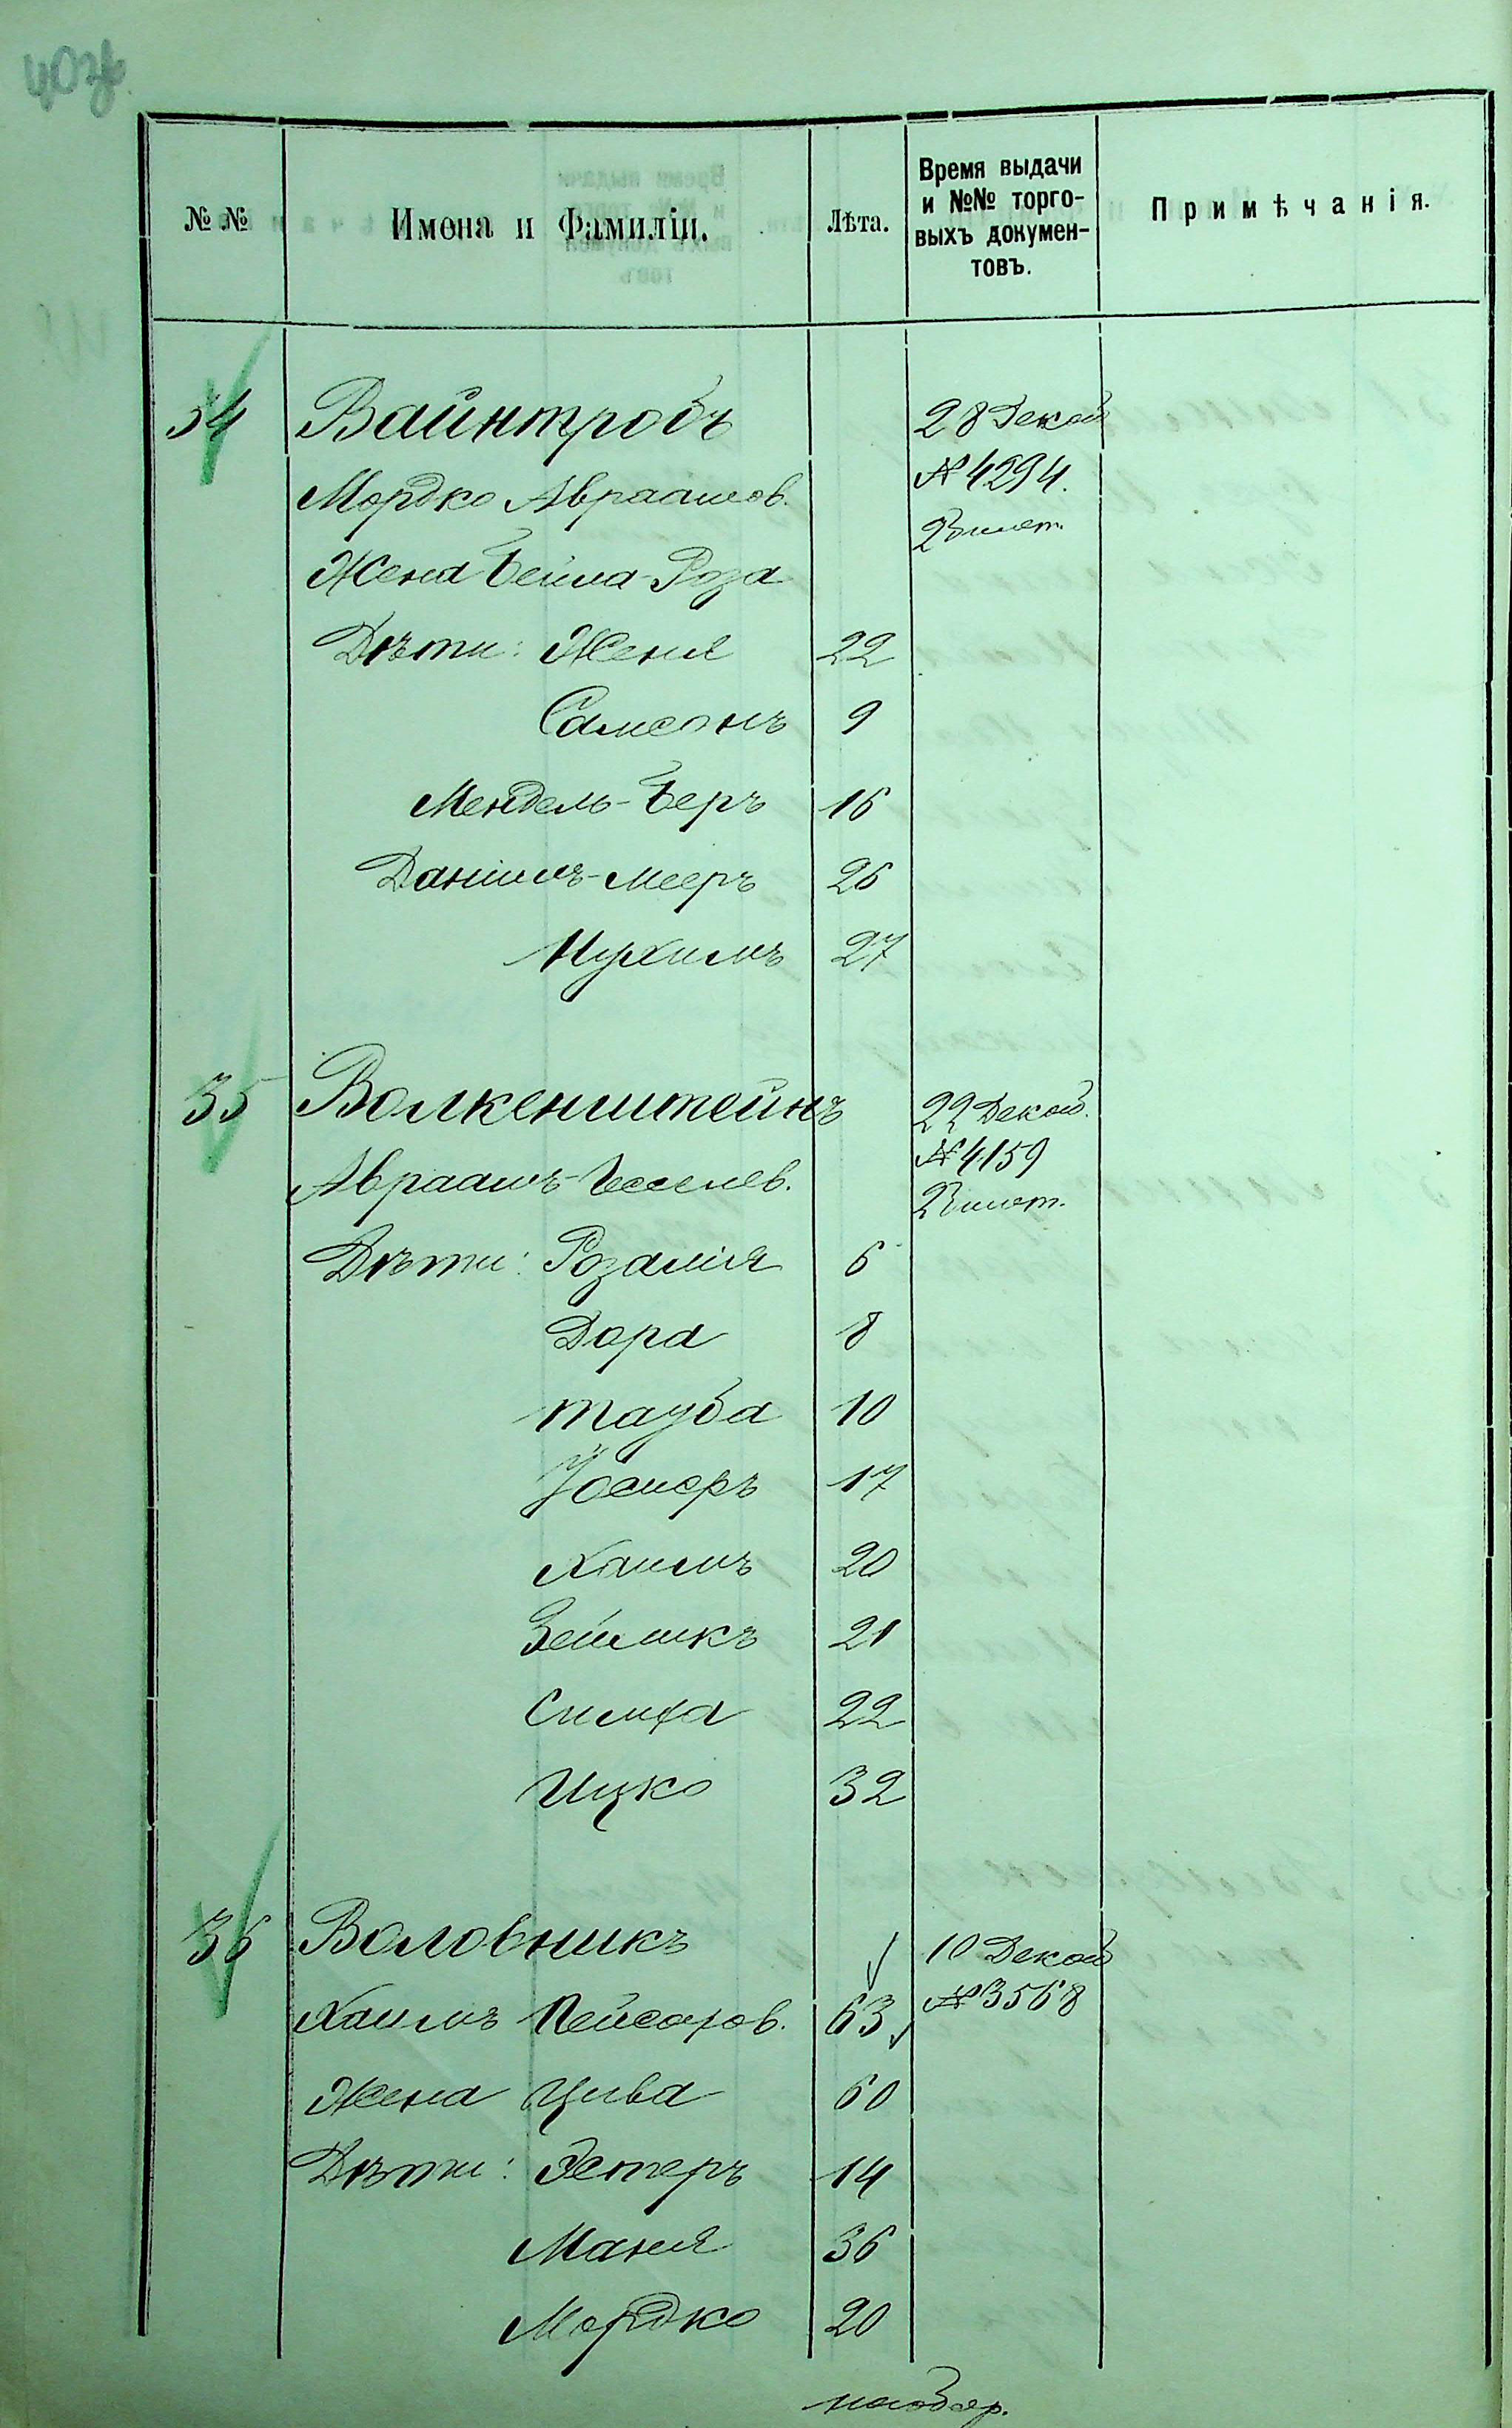 № №
Имена и Фамиліи.
Лѣта.
Время выдачи и №№ торговыхъ документовъ.
Примѣчанія.
34 Вайнтробъ 28 Декаб
Мордко Авраамов. № 4294.
Жена Бейла-Роза 2 билет.
Дѣти: Женя 22
Самсонъ 9
Мендель-Беръ 16
Даніилъ-Мееръ 26
Нухимъ 27
35 Волкенштейнъ 22 Декаб.
Авраамъ-Иоселев. № 4159
2 билет.
Дѣти: Розалія 6
Дора 8
Тауба 10
Іосифъ 17
Хаимъ 20
Зейликъ 21
Симха 22
Ицко 32
36 Воловникъ 10 Декаб
Хаимъ Пейсахов. 63 № 3568
Жена Цива 60
Дѣти: Эстеръ 14
Маня 36
Мордко 20
на обор.